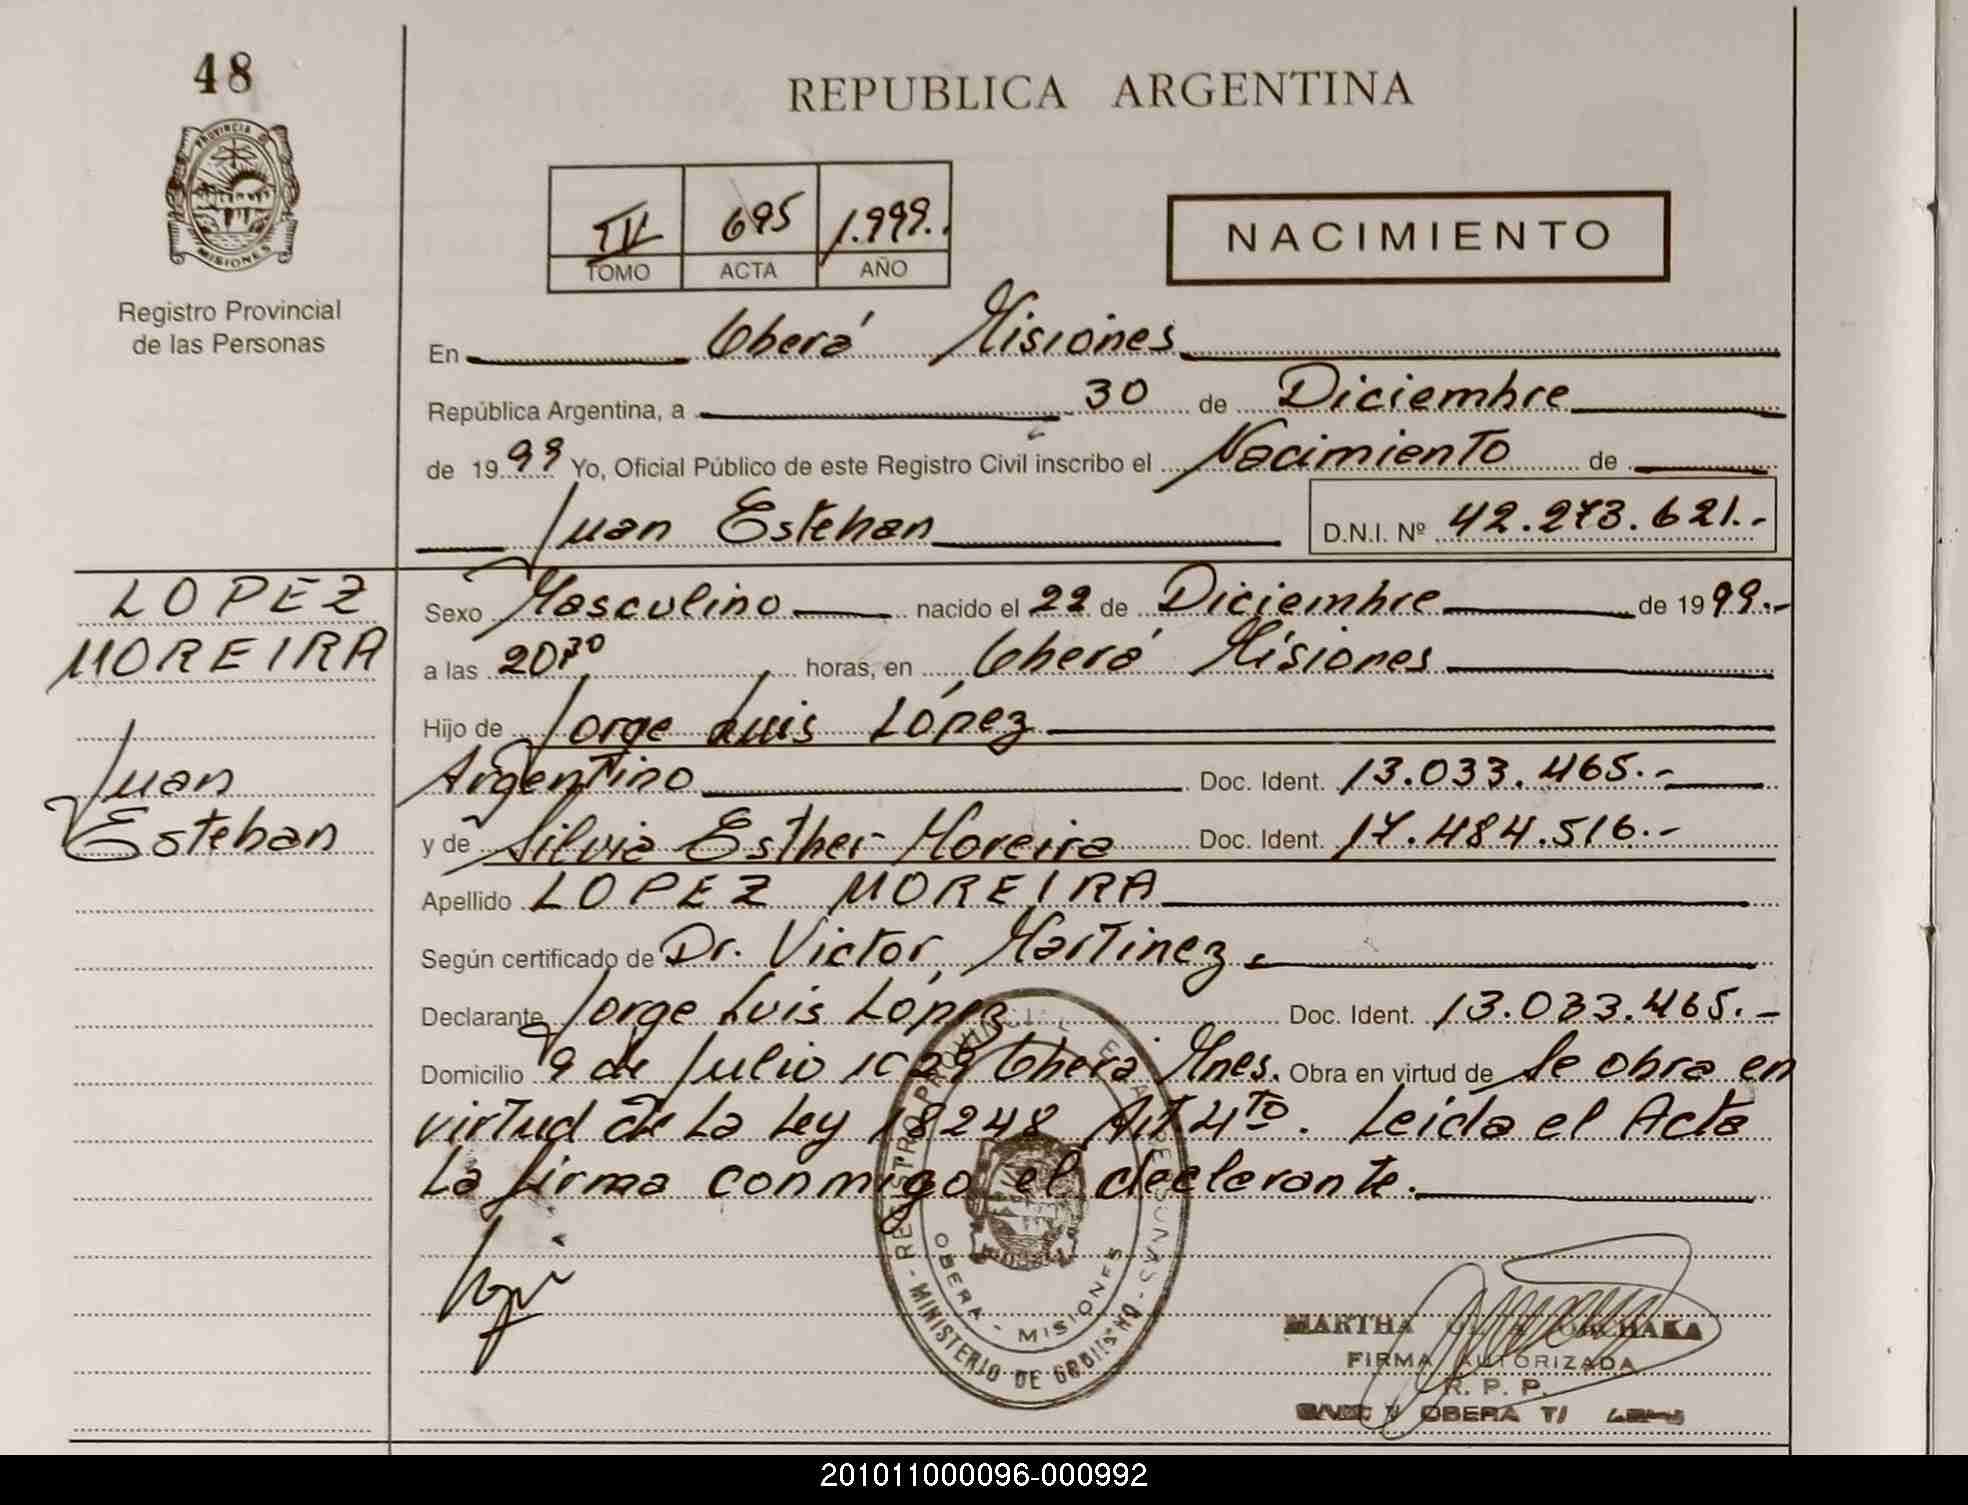 48
PROVINCIA DE
MISIONES
Registro Provincial
de las Personas
REPUBLICA ARGENTINA
IV 695 1.999.
TOMO ACTA AÑO
NACIMIENTO
En Oberá Misiones
República Argentina, a 30 de Diciembre
de 1999 Yo, Oficial Público de este Registro Civil inscribo el Nacimiento de
Juan Esteban D.N.I. Nº 42.273.621.-
LOPEZ
MOREIRA
Juan
Esteban
Sexo Masculino nacido el 22 de Diciembre de 1999.-
a las 20:30 horas, en Oberá Misiones
Hijo de Jorge Luis López
Argentino Doc. Ident. 13.033.465.-
y de Silvia Esther Moreira Doc. Ident. 17.484.516.-
Apellido LOPEZ MOREIRA
Según certificado de Dr. Victor Martinez.
Declarante Jorge Luis López Doc. Ident. 13.033.465.-
Domicilio 9 de Julio 1029 Oberá Mnes. Obra en virtud de Se obra en
virtud de La Ley 18248 Art 4to. Leida el Acta
La firma conmigo el declarante.
REGISTRO PROVINCIAL DE LAS PERSONAS
OBERA - MISIONES
MINISTERIO DE GOBIERNO
MARTHA
FIRMA AUTORIZADA
R. P. P.
OBERA
201011000096-000992